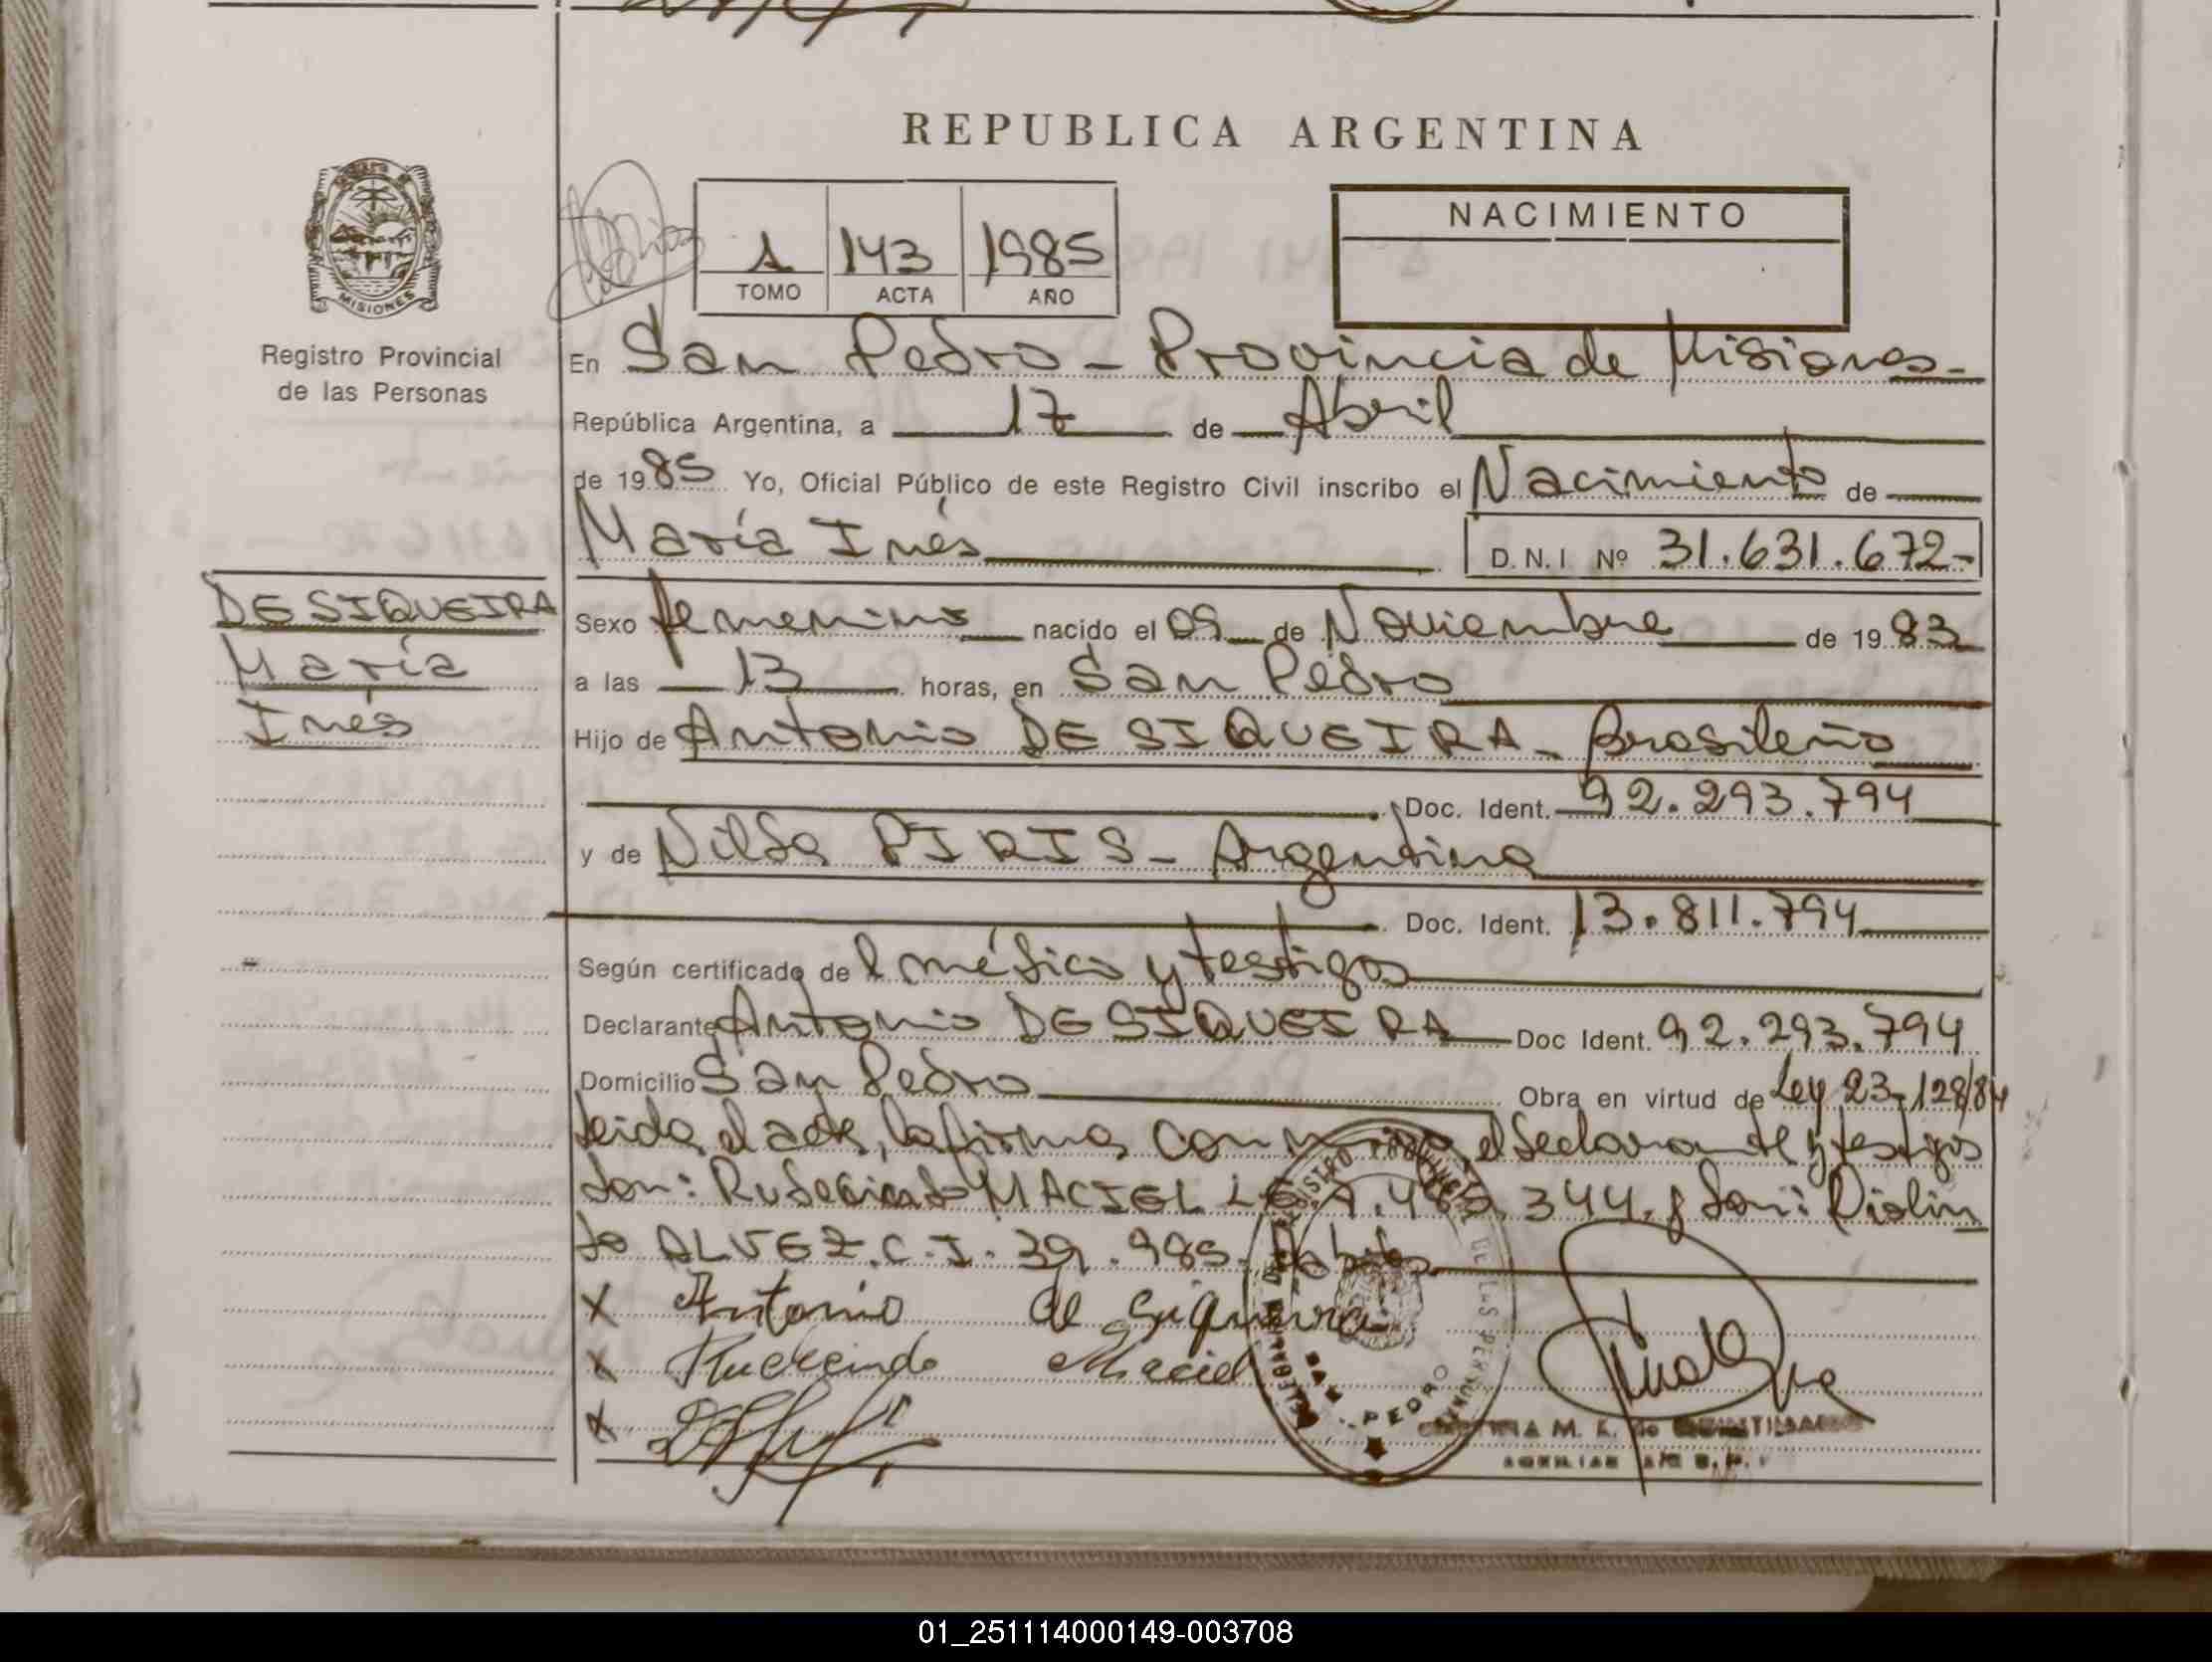 REPUBLICA ARGENTINA
MISIONES
Registro Provincial
de las Personas
1 143 1985
TOMO ACTA AÑO
NACIMIENTO
En San Pedro - Provincia de Misiones-
República Argentina, a 17 de Abril
de 1985 Yo, Oficial Público de este Registro Civil inscribo el Nacimiento de
María Inés D.N.I Nº 31.631.672-
DE SIQUEIRA
María
Inés
Sexo femenino nacido el 09 de Noviembre de 1983
a las 13 horas, en San Pedro
Hijo de Antonio DE SIQUEIRA - Brasileño
Doc. Ident. 92.293.794
y de Nilda PIRIS - Argentina
Doc. Ident. 13.811.794
Según certificado del médico y testigos
Declarante Antonio DE SIQUEIRA Doc Ident. 92.293.794
Domicilio San Pedro Obra en virtud de Ley 23-128/84
leida el acta, la firma con el declarante y testigos
don: MACIEL 344. y don: Diolin
do ALVEZ. C.I. 39.985.
x Antonio de Siqueira
x Maciel
x
REGISTRO PROVINCIAL DE LAS PERSONAS
SAN PEDRO
M. K. de
AUXILIAR
01_251114000149-003708